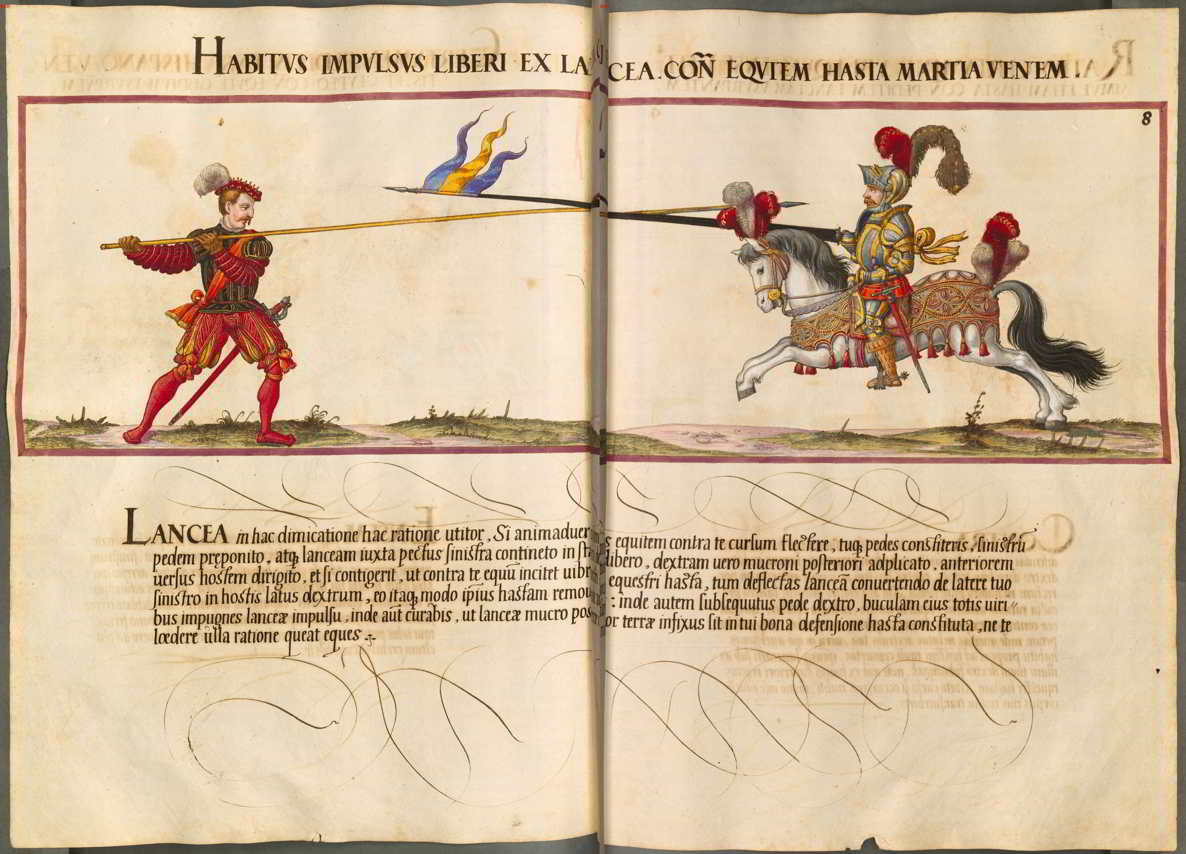 HABITVS IMPVLSVS LIBERI EX LANCEA. CON̄ EQVITEM HASTA MARTIA VENTEM.
8
LANCEA in hac dimicatione hac ratione utitor, Si animaduer s equitem contra te cursum flectere, tuq; pedes constiteris, sinistrū
pedem pręponito, atq; lanceam iuxta pectus sinistra contineto in libero, dextram uero mucroni posteriori adplicato, anteriorem
uersus hostem dirigito, et si contigerit, ut contra te equū incitet uibr equestri hasta, tum deflectas lanceā conuertendo de latere tuo
sinistro in hostis latus dextrum, eo itaq; modo ipsius hastam remou : inde autem subsequutus pede dextro, buculam eius totis uiri-
bus impugnes lanceæ impulsu, inde aūt curabis, ut lanceæ mucro pos or terræ infixus sit in tui bona defensione hasta constituta, ne te
lœdere ulla ratione queat eques.